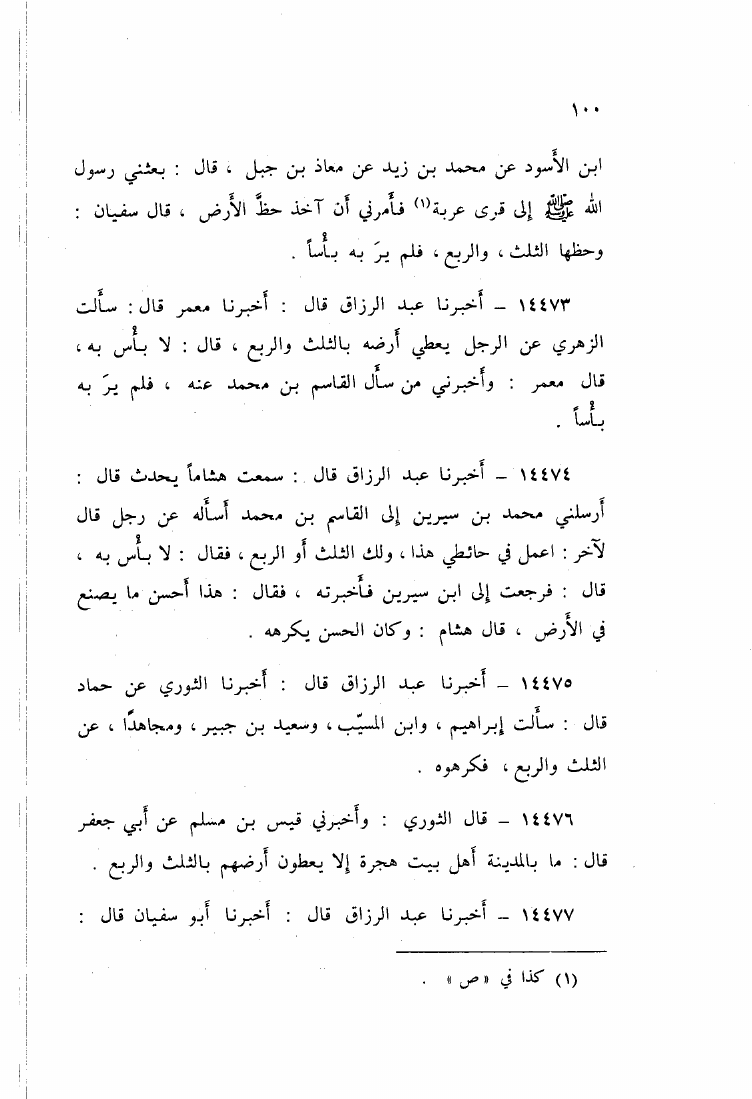 ١٠٠
ابن الأَسود عن محمد بن زيد عن معاذ بن جبل ، قال : بعثني رسول
الله ﷺ إلى قرى عربة(١) فأَمرني أَن آخذ حظَّ الأَرض ، قال سفيان :
وحظها الثلث ، والربع ، فلم يرَ به بأْساً .
١٤٤٧٣ – أَخبرنا عبد الرزاق قال : أَخبرنا معمر قال : سأَلت
الزهري عن الرجل يعطي أَرضه بالثلث والربع ، قال : لا بأْس به ،
قال معمر : وأَخبرني من سأَل القاسم بن محمد عنه ، فلم يرَ به
بأْساً .
١٤٤٧٤ – أَخبرنا عبد الرزاق قال : سمعت هشاماً يحدث قال :
أَرسلني محمد بن سيرين إلى القاسم بن محمد أَسأَله عن رجل قال
لآخر : اعمل في حائطي هذا ، ولك الثلث أَو الربع ، فقال : لا بأْس به ،
قال : فرجعت إلى ابن سيرين فأَخبرته ، فقال : هذا أَحسن ما يصنع
في الأَرض ، قال هشام : وكان الحسن يكرهه .
١٤٤٧٥ – أَخبرنا عبد الرزاق قال : أَخبرنا الثوري عن حماد
قال : سأَلت إبراهيم ، وابن المسيّب ، وسعيد بن جبير ، ومجاهدًا ، عن
الثلث والربع ، فكرهوه .
١٤٤٧٦ – قال الثوري : وأَخبرني قيس بن مسلم عن أَبي جعفر
قال : ما بالمدينة أَهل بيت هجرة إلا يعطون أَرضهم بالثلث والربع .
١٤٤٧٧ – أَخبرنا عبد الرزاق قال : أَخبرنا أَبو سفيان قال :
(١) كذا في « ص » .